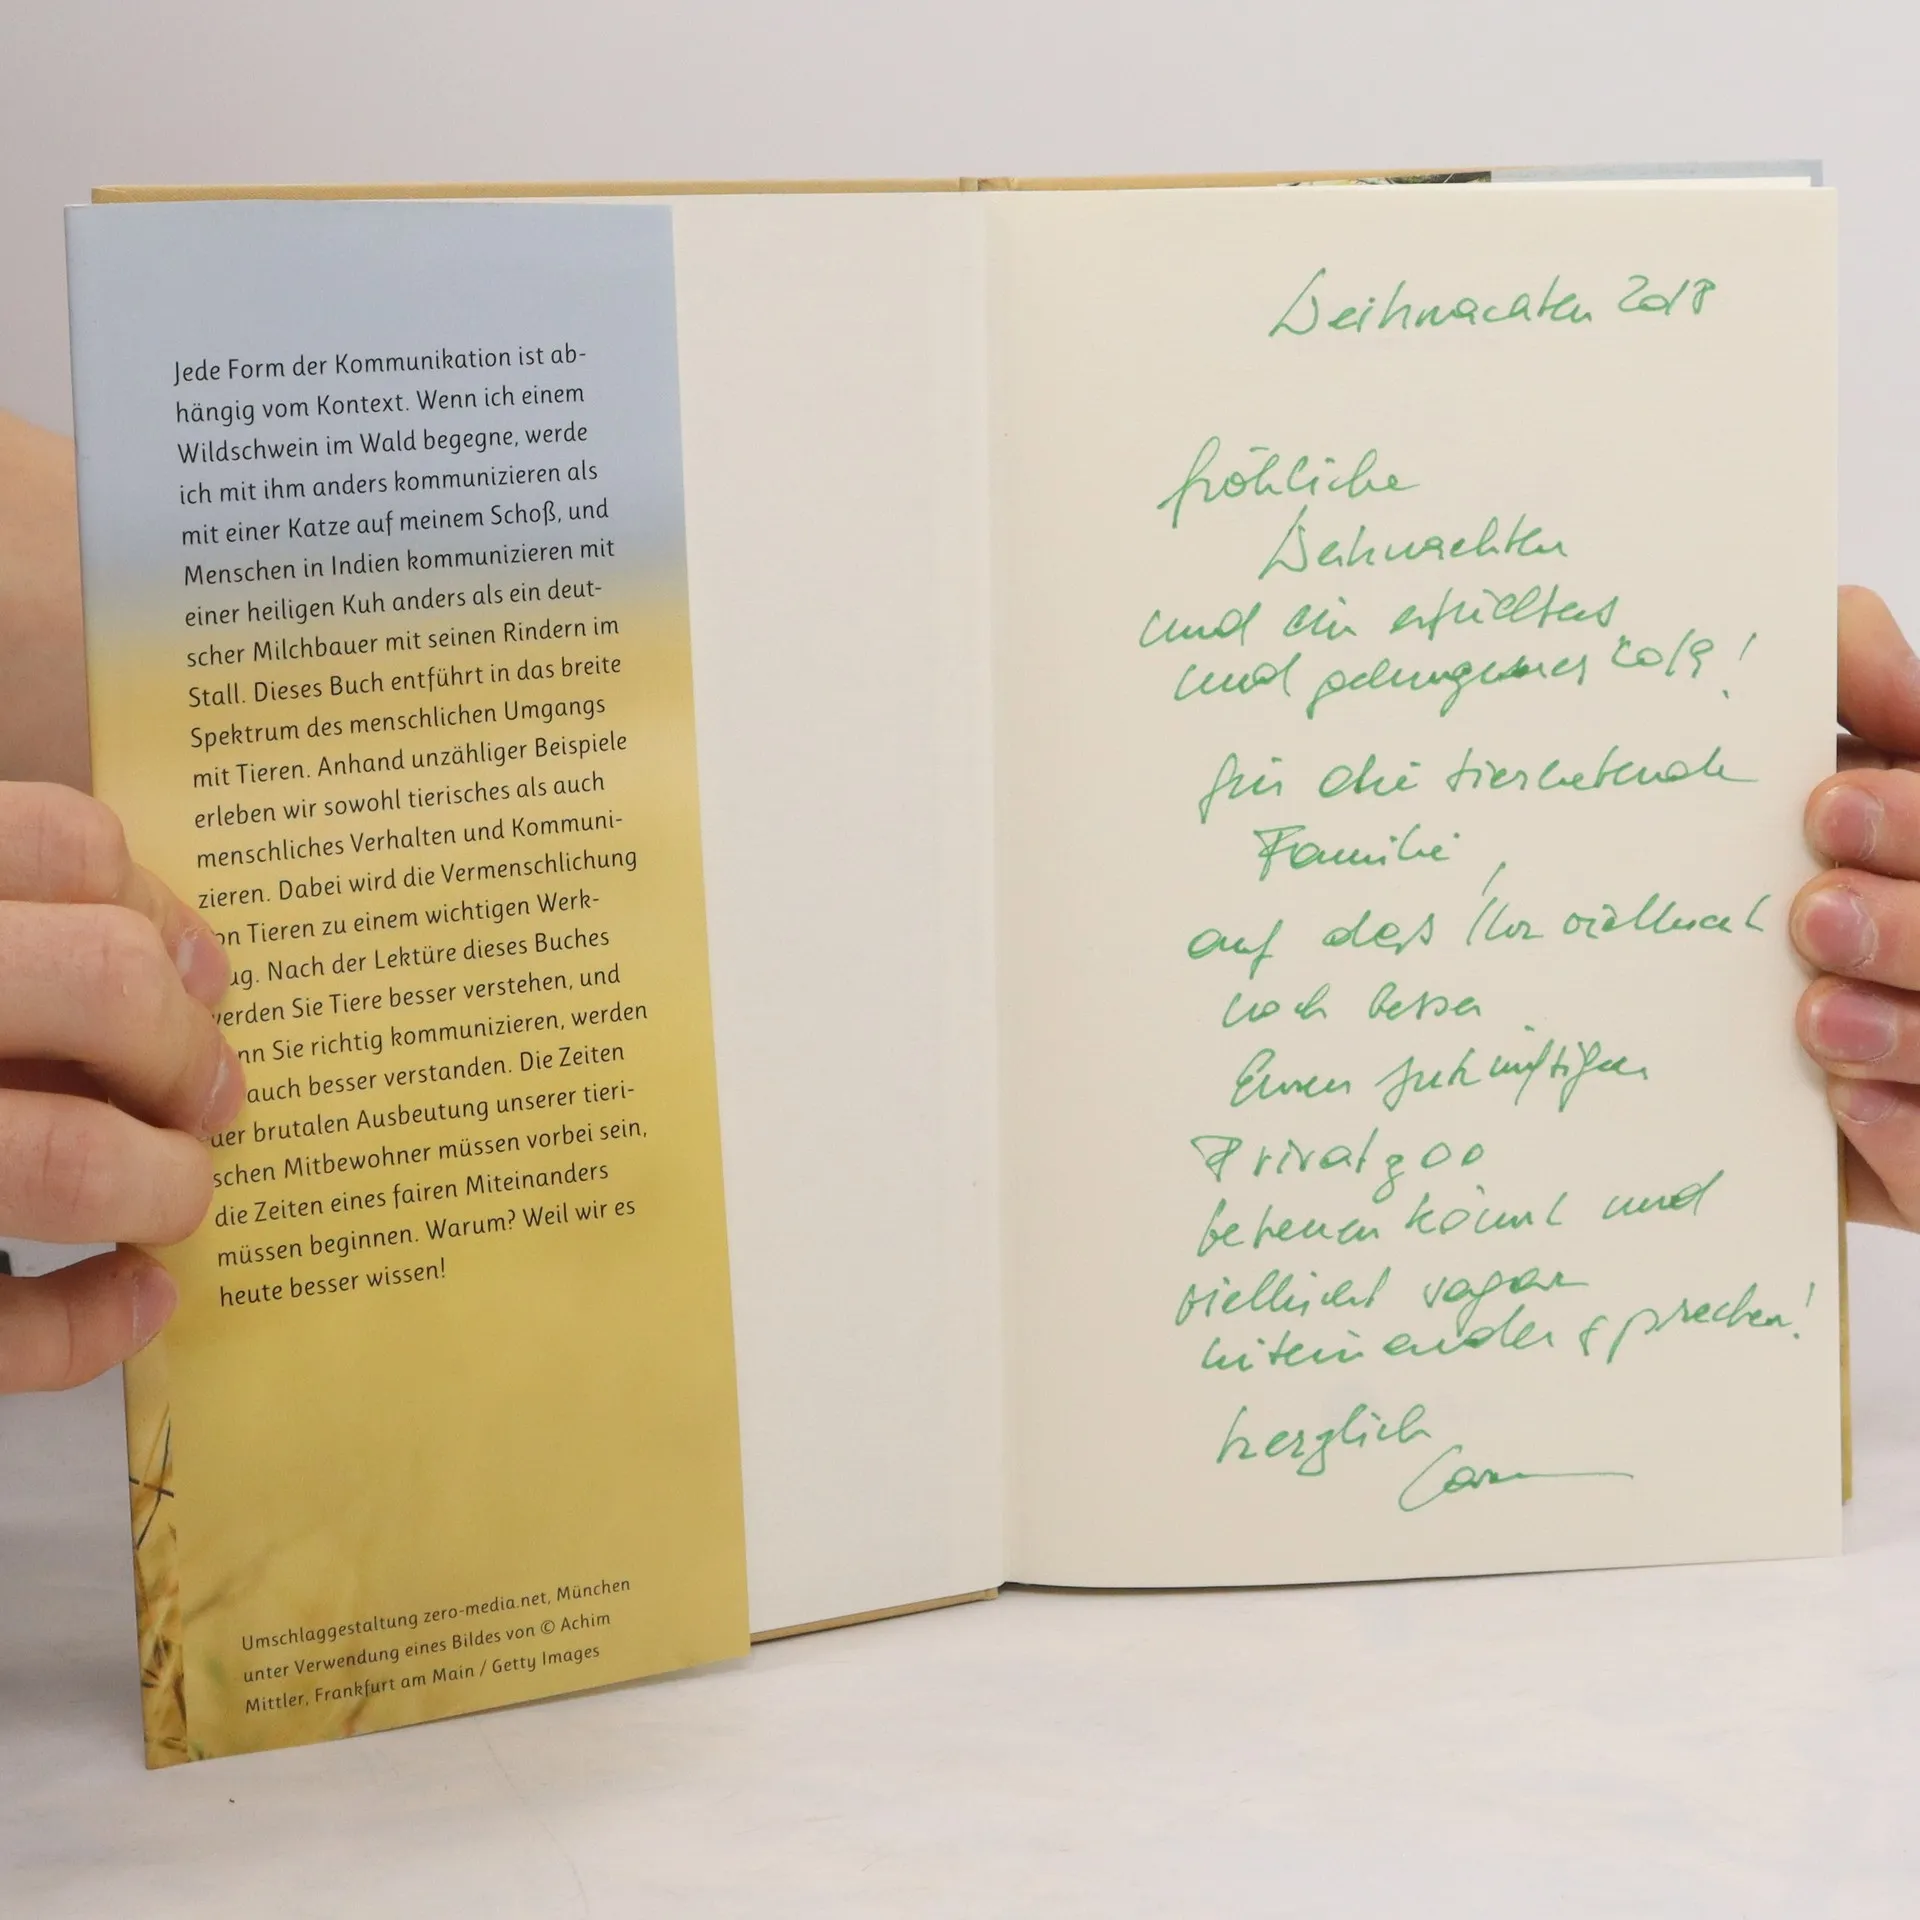 Jede Form der Kommunikation ist ab-
hängig vom Kontext. Wenn ich einem
Wildschwein im Wald begegne, werde
ich mit ihm anders kommunizieren als
mit einer Katze auf meinem Schoß, und
Menschen in Indien kommunizieren mit
einer heiligen Kuh anders als ein deut-
scher Milchbauer mit seinen Rindern im
Stall. Dieses Buch entführt in das breite
Spektrum des menschlichen Umgangs
mit Tieren. Anhand unzähliger Beispiele
erleben wir sowohl tierisches als auch
menschliches Verhalten und Kommuni-
zieren. Dabei wird die Vermenschlichung
on Tieren zu einem wichtigen Werk-
ug. Nach der Lektüre dieses Buches
erden Sie Tiere besser verstehen, und
nn Sie richtig kommunizieren, werden
auch besser verstanden. Die Zeiten
der brutalen Ausbeutung unserer tieri-
schen Mitbewohner müssen vorbei sein,
die Zeiten eines fairen Miteinanders
müssen beginnen. Warum? Weil wir es
heute besser wissen!
Umschlaggestaltung zero-media.net, München
unter Verwendung eines Bildes von © Achim
Mittler, Frankfurt am Main / Getty Images
Weihnachten 2018
fröhliche
Weihnachten
und ein erfülltes
und gelungenes 2019!
für die tierliebende
Familie,
auf dass Ihr vielleicht
noch besser
Euren zukünftigen
Privatzoo
betreuen könnt und
vielleicht sogar
miteinander sprechen!
herzlich